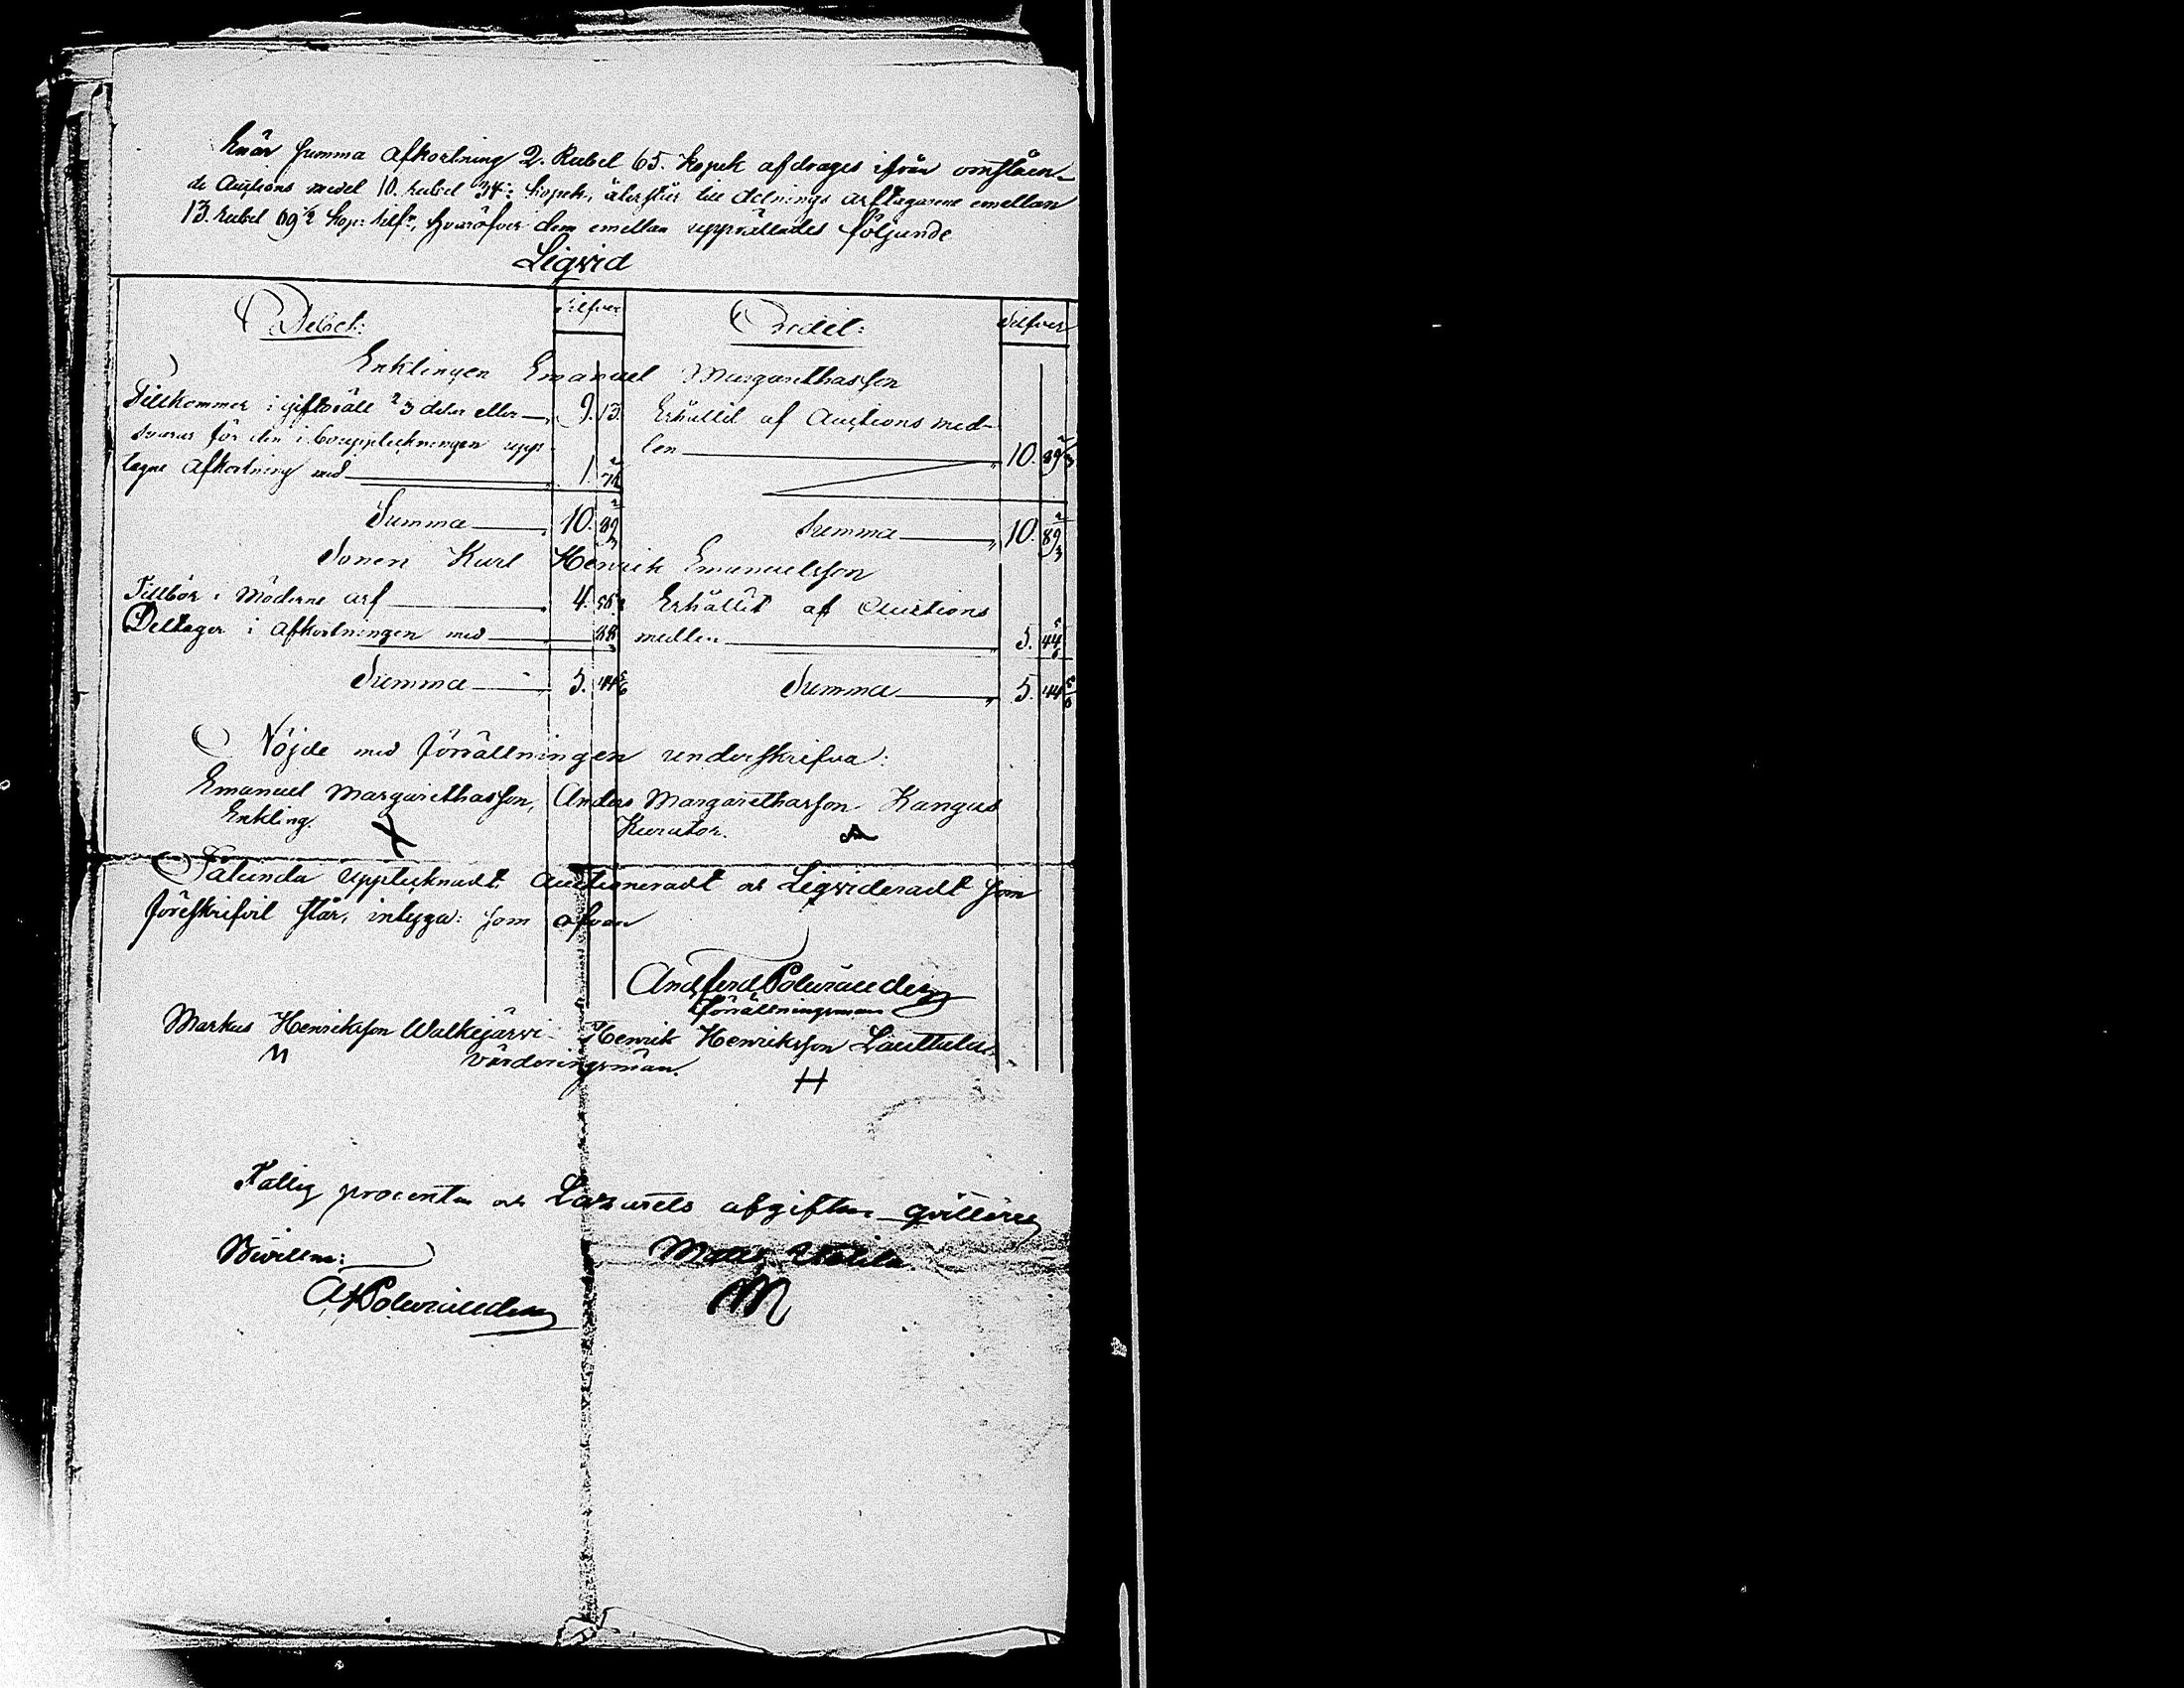 hvar summa afkortning 2. Rubel 65. Kopek afdrages ifrån omståen-
de Auctions medel 10. rubel 34 kopek, återstår till delnings arftagarene emellan
13. rubel 69 1/2 kop: silfr, hvaröfver dem emellan upprättades följande
Liqvid
Debet: Silfver Credit: Silfver
Enklingen Emanuel Margarethasson
Tillkommer i giftorätt 2/3 delar eller 9. 13. Erhållit af Auctions med-
svarar för den i bouppteckningen upp-
len 10. 89 2/3
tagne Afkortning med 1. 76 2/3
Summa 10. 89 2/3 Summa 10. 89 2/3
Sonen Karl Henrik Emanuelsson
Tillbör i Möderne arf 4. 56 Erhållit af Auctions
Deltager i afkortningen med 88 medlen 5. 44 5/6
Summa 5. 44 5/6 Summa 5. 44 5/6
Nöjde med förrättningen underskrifva:
Emanuel Margarethasson, Anders Margarethasson Kangas
Enkling. Kurator.
Sålunda upptecknadt, Auctioneradt och Liqvideradt som
föreskrifvit står, intyga: som ofvan
And Ferd Polviander
förrättningsman
Markus Henriksson Walkejärvi Henrik Henriksson
M Värderingsmän. H
Fattig procenten och Lazarets afgiften qvitteras
Bevittna: Matts
AF Polviander M